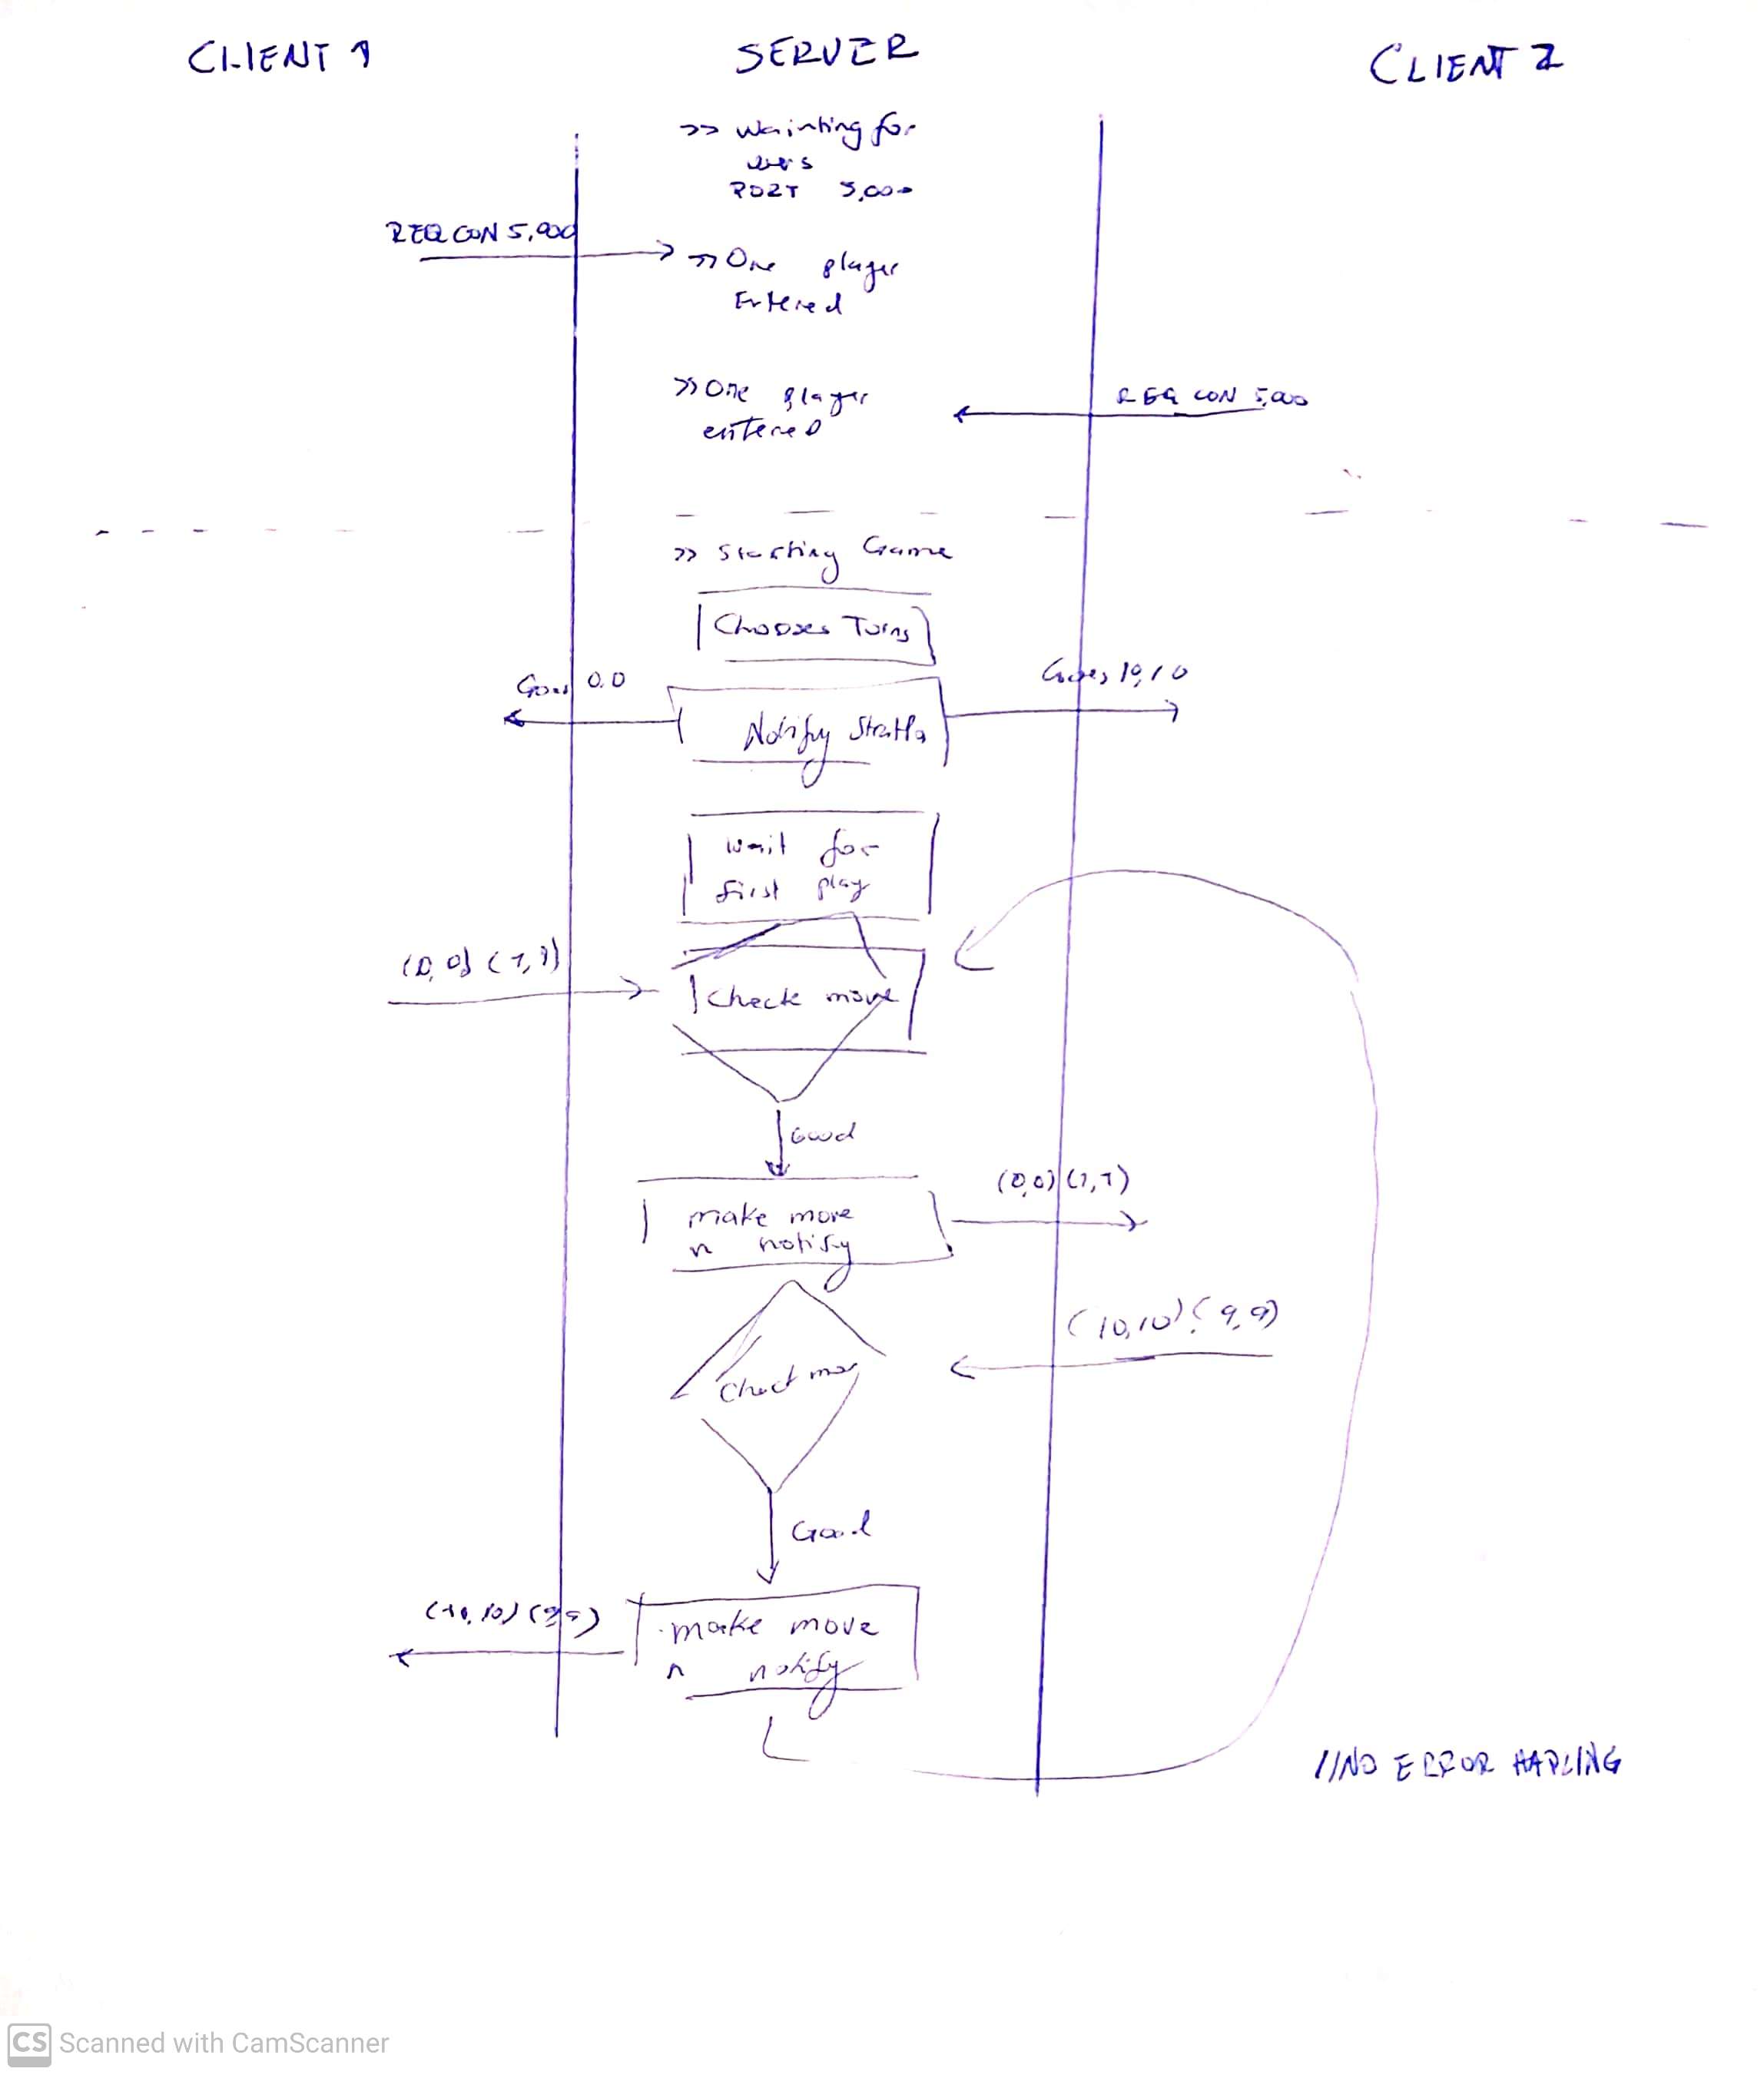 CLIENT 1
SERVER
CLIENT 2
>> Wainting for
users
PORT 5,000
REQ CON 5,000
>> One player
Entered
>> One player
entered
REQ CON 5,000
>> Starting Game
Chooses Turns
Goes 0,0
Goes 10,10
Notify
Wait for
first play
(0,0) (1,1)
Check move
Good
(0,0) (1,1)
make move
n notify
(10,10) (9,9)
Check mov
Good
(10,10) (9,9)
make move
n notify
//NO ERROR HADLING
CS Scanned with CamScanner